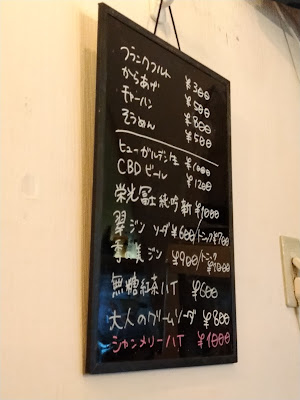 フランクフルト ¥300
からあげ ¥500
チャーハン ¥800
そうめん ¥500
ヒューガルデン生 ¥1000
CBDビール ¥1200
栄光冨士 純吟 新 ¥1000
翠ジン ソーダ¥600/トニック¥700
ジン ¥900/トニック ¥1000
無糖紅茶ハイ ¥600
大人のクリームソーダ ¥800
シャンメリーハイ ¥1000